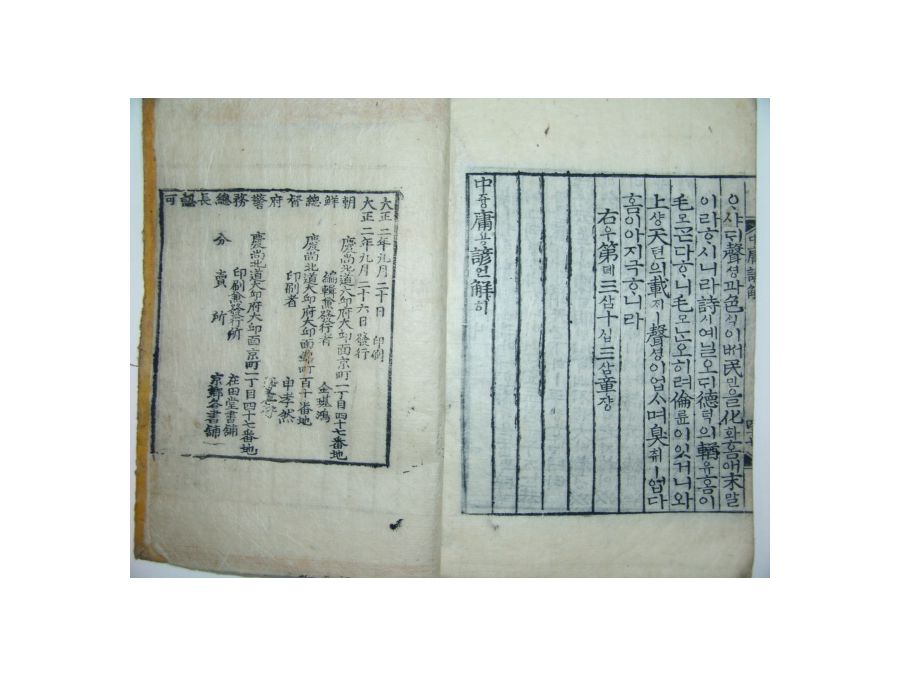 中庸諺解
ᄋᆞ샤ᄃᆡ聲셩과色ᄉᆡᆨ이ᄡᅥ民민을化화홈애末말
이라ᄒᆞ시니라詩시예닐오ᄃᆡ德덕의輶유홈이
毛모ᄀᆞᆮ다ᄒᆞ니毛모ᄂᆞᆫ오히려倫륜이잇거니와
上샹天텬의載ᄌᆡㅣ聲셩이업ᄉᆞ며臭취ㅣ업다
홈이아지극ᄒᆞ니라
右우第뎨三삼十십三삼章쟝
中듕庸용諺언解ᄒᆡ
朝鮮總督府警務總長認可
大正二年九月二十日 印刷
大正二年九月二十六日 發行
慶尙北道大邱府大邱面京町一丁目四十七番地
編輯兼發行者 金璂鴻
慶尙北道大邱府大邱面 町百十番地
印刷者 申孝然
慶尙北道大邱府大邱面京町一丁目四十七番地
印刷兼發行所 在田堂書鋪
分賣所 京鄕各書鋪